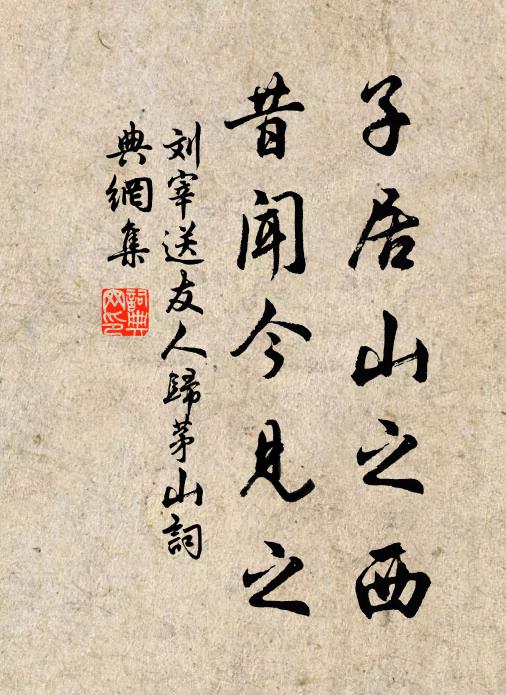 子居山之西
昔闻今见之
刘宰送友人歸茅山詞
典網集
詞典網印